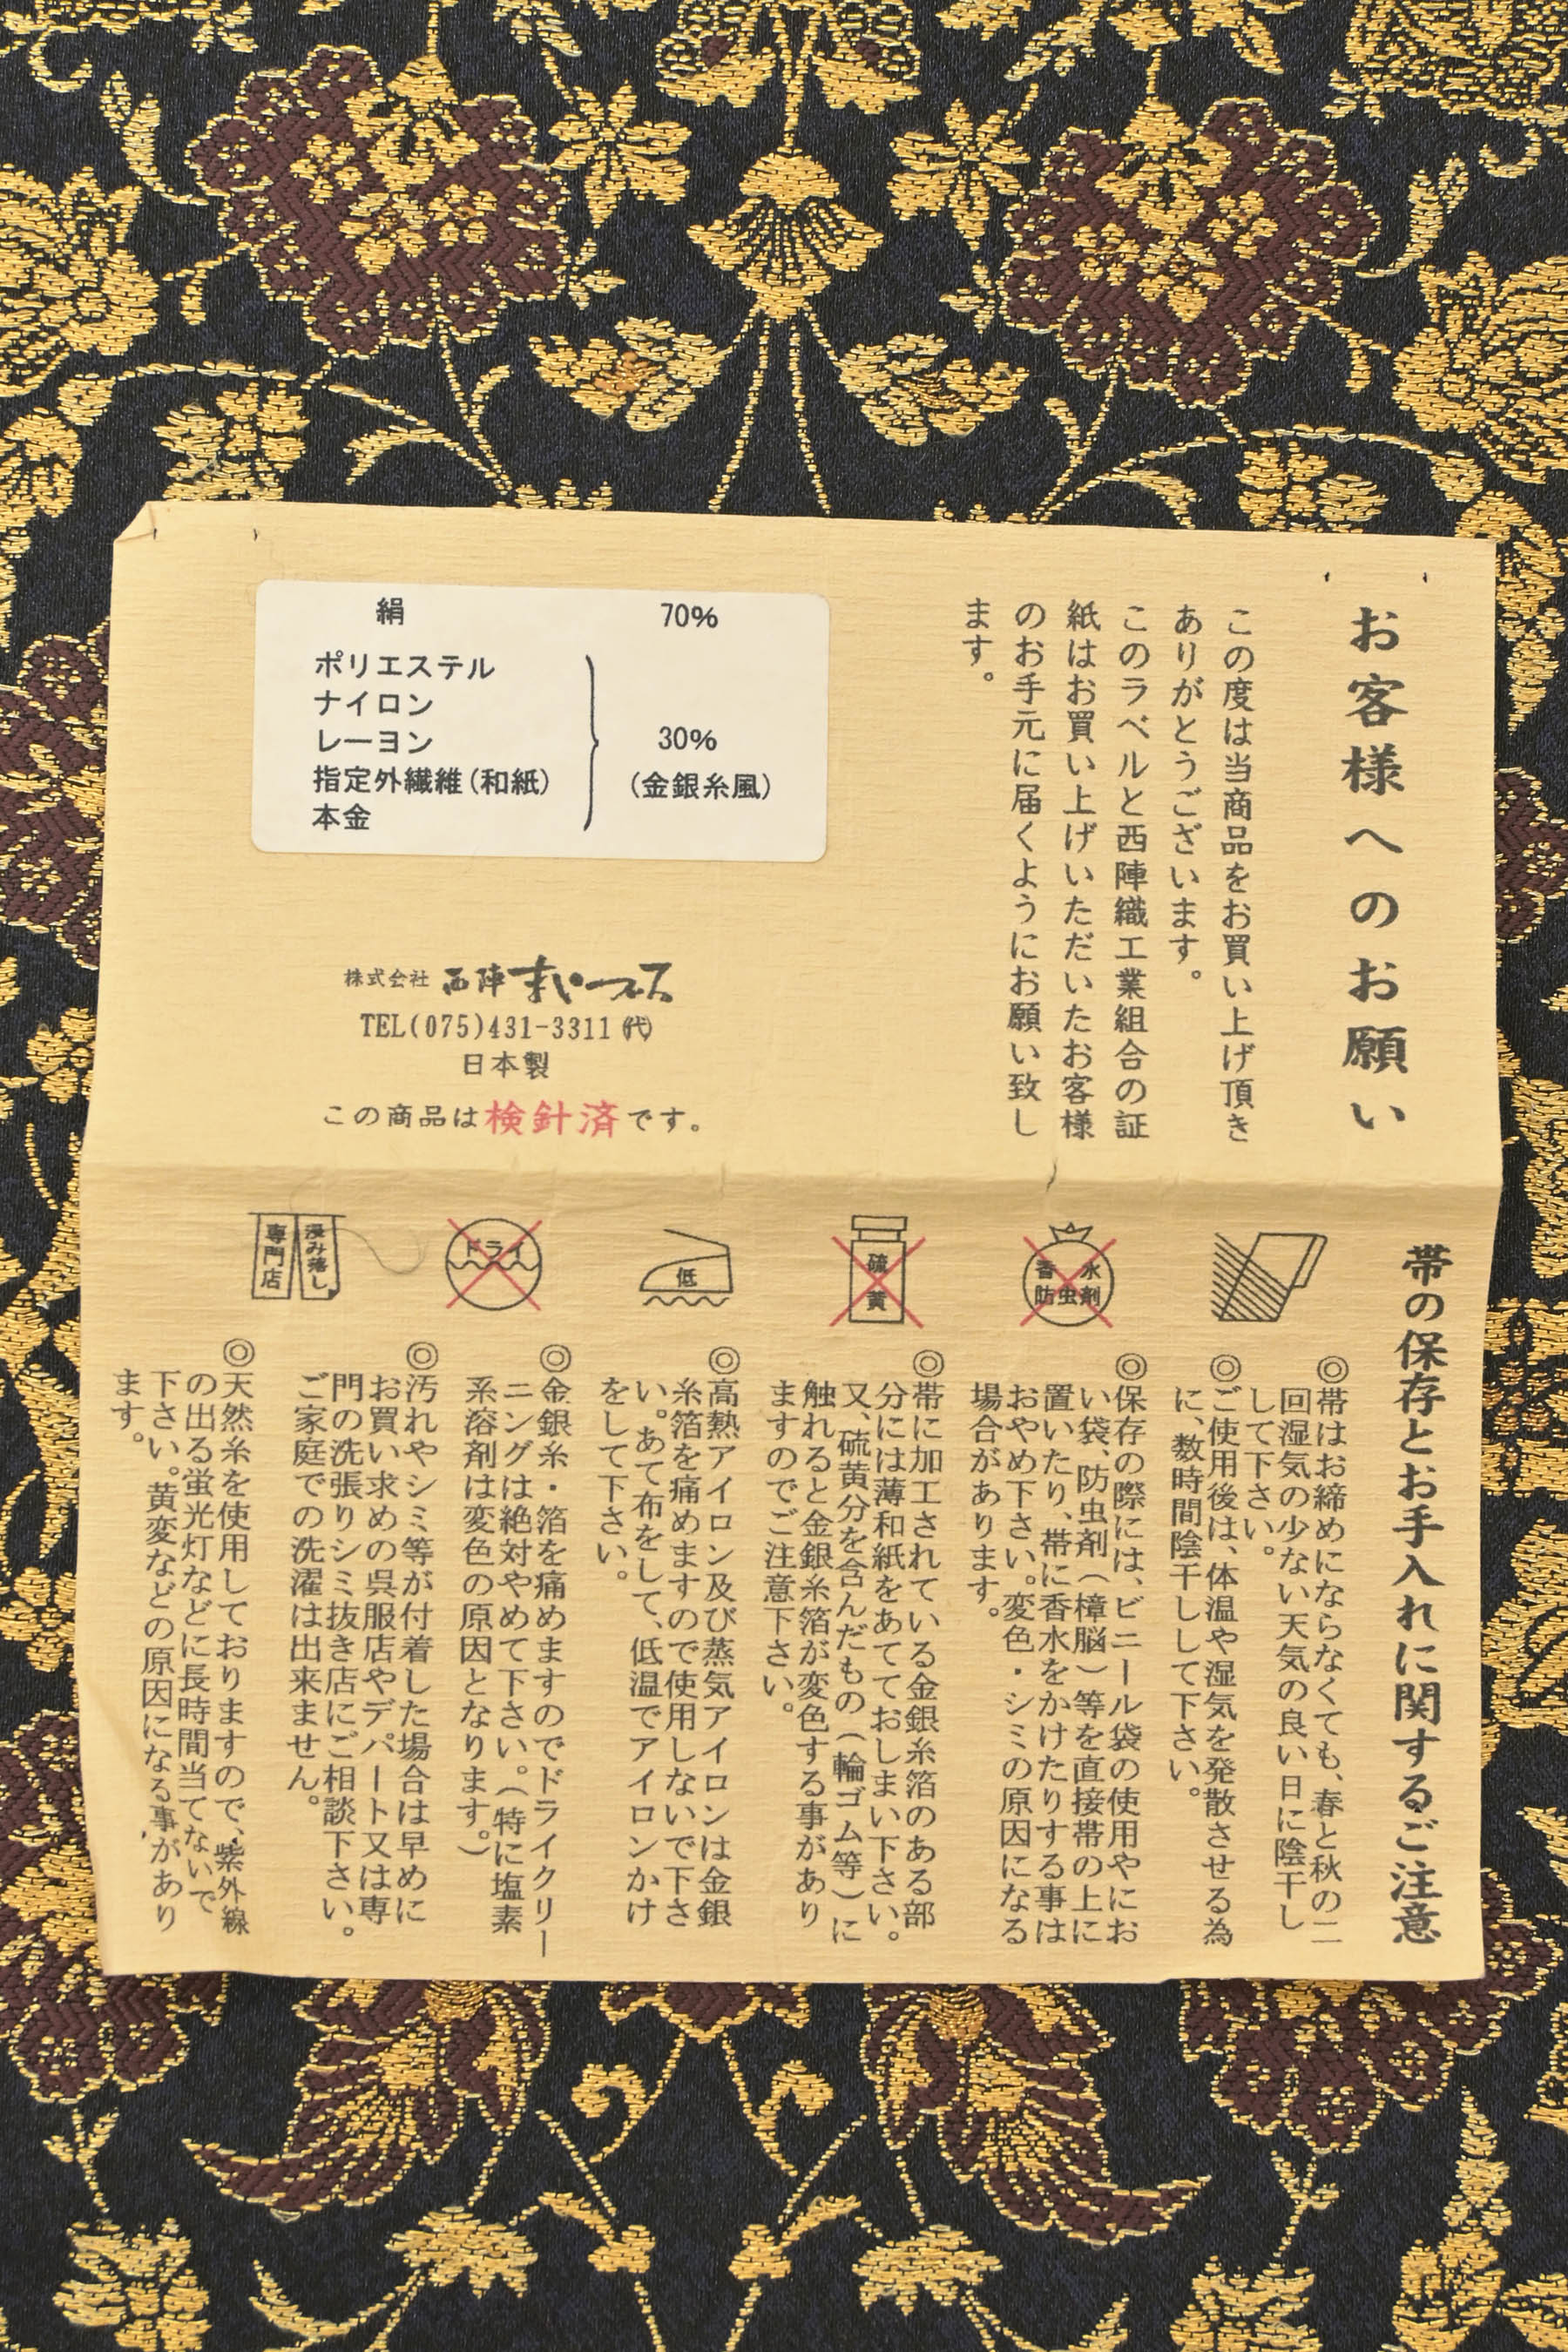 お客様へのお願い
この度は当商品をお買い上げ頂き
ありがとうございます。
このラベルと西陣織工業組合の証
紙はお買い上げいただいたお客様
のお手元に届くようにお願い致し
ます。
絹 70%
ポリエステル
ナイロン
レーヨン 30%
指定外繊維(和紙) (金銀糸風)
本金
株式会社 西陣まいづる
TEL(075)431-3311㈹
日本製
この商品は検針済です。
帯の保存とお手入れに関するご注意
香水
防虫剤
硫
黄
低
ドライ
浸み落し
専門店
◎帯はお締めにならなくても、春と秋の二
回湿気の少ない天気の良い日に陰干し
して下さい。
◎ご使用後は、体温や湿気を発散させる為
に、数時間陰干しして下さい。
◎保存の際には、ビニール袋の使用やにお
い袋、防虫剤(樟脳)等を直接帯の上に
置いたり、帯に香水をかけたりする事は
おやめ下さい。変色・シミの原因になる
場合があります。
◎帯に加工されている金銀糸箔のある部
分には薄和紙をあてておしまい下さい。
又、硫黄分を含んだもの(輪ゴム等)に
触れると金銀糸箔が変色する事があり
ますのでご注意下さい。
◎高熱アイロン及び蒸気アイロンは金銀
糸箔を痛めますので使用しないで下さ
い。あて布をして、低温でアイロンかけ
をして下さい。
◎金銀糸・箔を痛めますのでドライクリー
ニングは絶対やめて下さい。(特に塩素
系溶剤は変色の原因となります。)
◎汚れやシミ等が付着した場合は早めに
お買い求めの呉服店やデパート又は専
門の洗張りシミ抜き店にご相談下さい。
ご家庭での洗濯は出来ません。
◎天然糸を使用しておりますので、紫外線
の出る蛍光灯などに長時間当てないで
下さい。黄変などの原因になる事があり
ます。